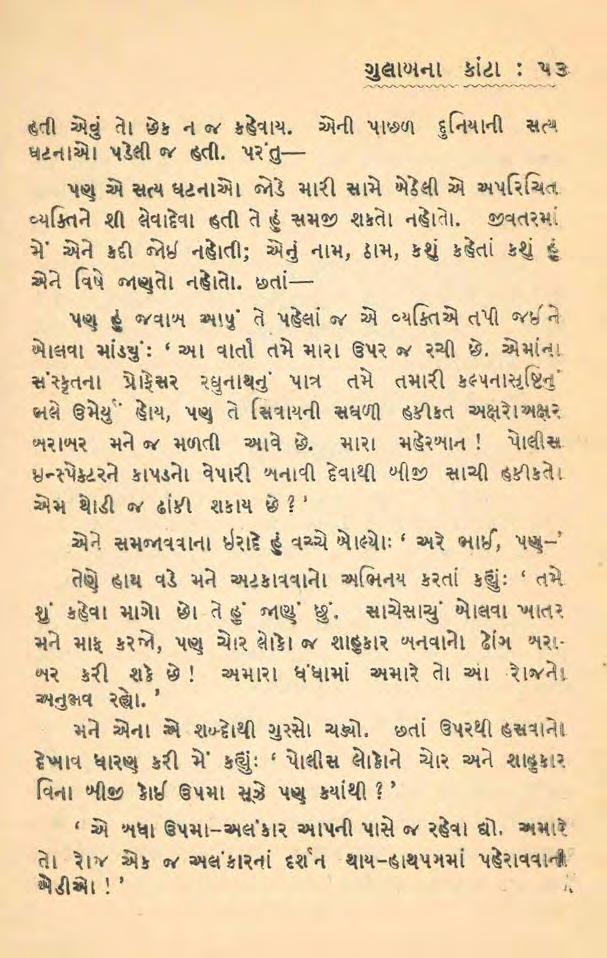 ગુલાબના કાંટા : ૫૩
હતી એવું તો છેક ન જ કહેવાય. એની પાછળ દુનિયાની સત્ય
ઘટનાઓ પડેલી જ હતી. પરંતુ—
પણ એ સત્ય ઘટનાઓ જોડે મારી સામે બેઠેલી એ અપરિચિત
વ્યક્તિને શી લેવાદેવા હતી તે હું સમજી શકતો નહોતો. જીવતરમાં
મેં એને કદી જોઈ નહોતી; એનું નામ, ઠામ, કશું કહેતાં કશું હું
એને વિષે જાણતો નહોતો. છતાં—
પણ હું જવાબ આપું તે પહેલાં જ એ વ્યક્તિએ તપી જઈને
બોલવા માંડ્યું: ‘ આ વાર્તા તમે મારા ઉપર જ રચી છે. એમાંના
સંસ્કૃતના પ્રોફેસર રઘુનાથનું પાત્ર તમે તમારી કલ્પનાસૃષ્ટિનું
ભલે ઉમેર્યું હોય, પણ તે સિવાયની સઘળી હકીકત અક્ષરોઅક્ષર
બરાબર મને જ મળતી આવે છે. મારા મહેરબાન ! પોલીસ
ઇન્સ્પેક્ટરને કાપડનો વેપારી બનાવી દેવાથી બીજી સાચી હકીકતો
એમ થોડી જ ઢાંકી શકાય છે ? ’
એને સમજાવવાના ઈરાદે હું વચ્ચે બોલ્યો: ‘ અરે ભાઈ, પણ—’
તેણે હાથ વડે મને અટકાવવાનો અભિનય કરતાં કહ્યું: ‘ તમે
શું કહેવા માગો છો તે હું જાણું છું. સાચેસાચું બોલવા ખાતર
મને માફ કરજો, પણ ચોર લોકો જ શાહુકાર બનવાનો ઢોંગ બરા-
બર કરી શકે છે ! અમારા ધંધામાં અમારે તો આ રોજનો
અનુભવ રહ્યો. ’
મને એના એ શબ્દોથી ગુસ્સો ચઢ્યો. છતાં ઉપરથી હસવાનો
દેખાવ ધારણ કરી મેં કહ્યું: ‘ પોલીસ લોકોને ચોર અને શાહુકાર
વિના બીજી કોઈ ઉપમા સૂઝે પણ કયાંથી ? ’
‘ એ બધા ઉપમા–અલંકાર આપની પાસે જ રહેવા દ્યો. અમારે
તો રોજ એક જ અલંકારનાં દર્શન થાય–હાથપગમાં પહેરાવવાની
બેડીઓ ! ’